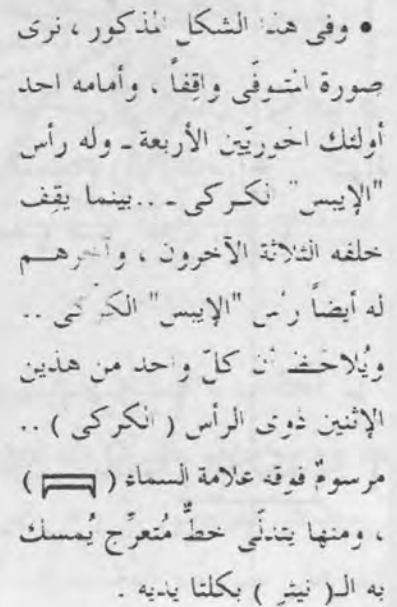 • وفى هذا الشكل المذكور ، نرى
صورة المتوفّى واقِفاً ، وأمامه احد
أولئك الحوريّين الأربعة ـ وله رأس
"الإيبس" الكركى ـ .. بينما يقِف
خلفه الثلاثة الآخرون ، وآخرهم
له أيضاً رأس "الإيبس" الكركى ..
ويُلاحَظ أن كلّ واحد من هذين
الإثنين ذوى الرأس ( الكركى ) ..
مرسومٌ فوقه علامة السماء ( )
، ومنها يتدلّى خطٌّ مُتعرِّج يُمسك
به الـ( نيثر ) بكلتا يديه .